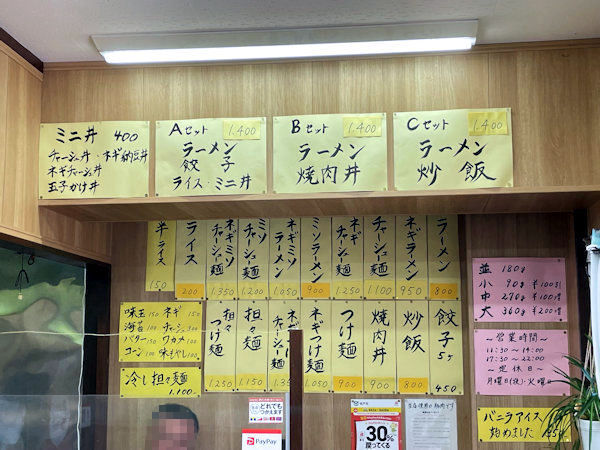 ミニ丼 400
チャーシュー丼・ネギ納豆丼
ネギチャーシュー丼
玉子かけ丼
Aセット 1.400
ラーメン
餃子
ライス・ミニ丼
Bセット 1.400
ラーメン
焼肉丼
Cセット 1.400
ラーメン
炒飯
ラーメン 800
ネギラーメン 950
チャーシュー麺 1.100
ネギチャーシュー麺 1.250
ミソラーメン 900
ネギミソラーメン 1.050
ミソチャーシュー麺 1.200
ネギミソチャーシュー麺 1.350
ライス 200
半ライス 150
餃子 5ヶ 450
炒飯 800
焼肉丼 900
つけ麺 900
ネギつけ麺 1.050
チャーシューつけ麺
担々麺 1.150
担々つけ麺 1.250
味玉 150 ネギ 150
海苔 100 チャーシュー 300
バター 150 ワカメ 100
コーン 100 味もやし 100
冷し担々麺
1.100
並 180g
小 90g ¥100引
中 270g ¥100増
大 360g ¥200増
~営業時間~
11:30~14:00
17:30~22:00
~定休日~
月曜日(祝)・火曜日
バニラアイス
始めました
どれでも
つかえます
PayPay
30%
戻ってくる